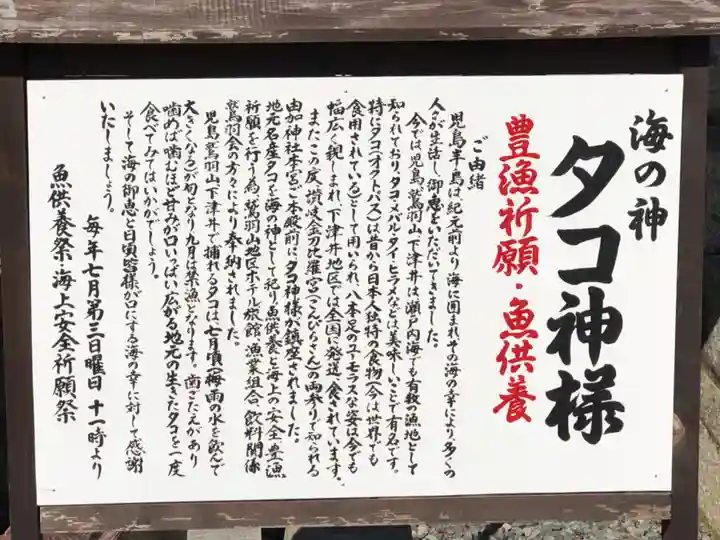 海の神
タコ神様
豊漁祈願・魚供養
ご由緒
児島半島は紀元前より海に囲まれその海の幸により多くの
人々が生活し、御恵をいただいてきました。
今では児島、鷲羽山、下津井は瀬戸内海でも有数の漁地として
知られており、タコ・メバル・タイ・ヒラメなどは美味しいことで有名です。
特にタコ(オクトパス)は昔から日本人独特の食物(今は世界でも
食用されている)として用いられ、八本足のユーモラスな姿は今でも
幅広く親しまれ、下津井地区では全国に発送、食されています。
またこの度、讃岐金刀比羅宮(こんぴらさん)の両参りで知られる
由加神社本宮ご本殿前に、タコ神様が鎮座されました。
地元名産タコを海の神として祀り魚供養と海上の安全、豊漁
祈願を行う為、鷲羽山地区ホテル旅館、漁業組合、飲料関係
鷲羽会の方々により奉納されました。
児島、鷲羽山、下津井で捕れるタコは、七月頃(梅雨の水を飲んで
大きくなる)が旬となり、九月は禁漁となります。歯ごたえがあり
噛めば噛むほど甘みが口いっぱい広がる地元の生きたタコを一度
食べてみてはいかがでしょう。
そして海の御恵と日頃皆様が口にする海の幸に対して感謝
いたしましょう。
魚供養祭・海上安全祈願祭
毎年七月第三日曜日 十一時より